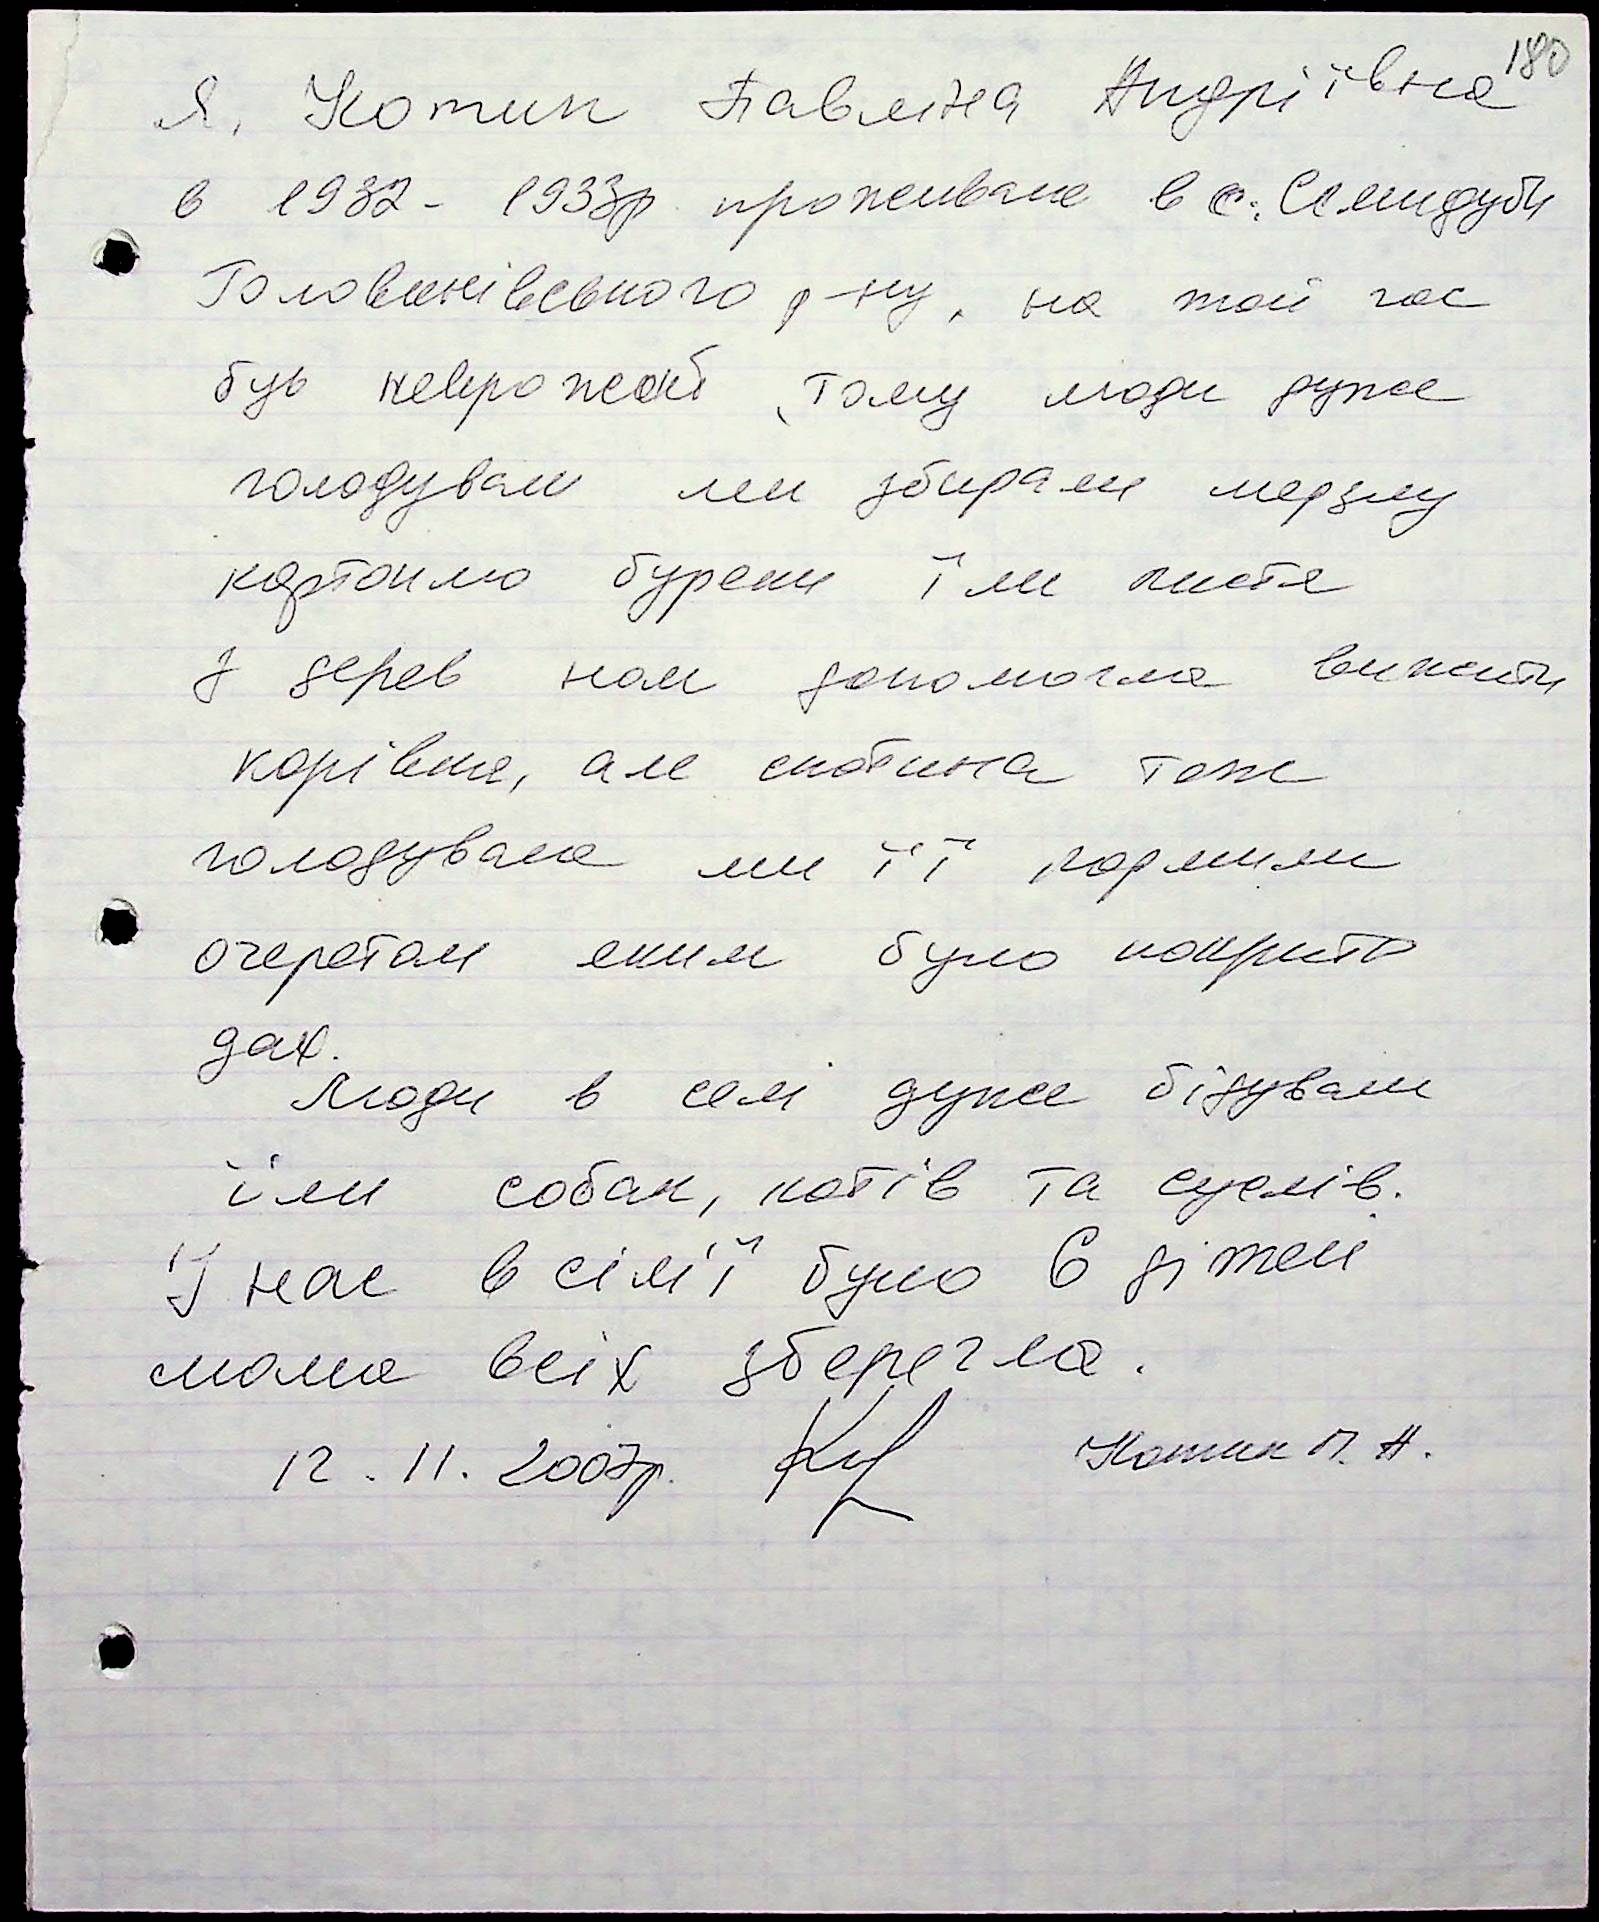 180
Я, Котик Павліна Андріївна
в 1932 - 1933р проживала в с. Семидуби
Голованівського р-ну, на той час
був неврожай, тому люди дуже
голодували ми збирали мерзлу
картоплю буряки їли листя
з дерев нам допомогла вижити
корівка, але скотина теж
голодувала ми її кормили
очеретом яким було покрито
дах.
Люди в селі дуже бідували
їли собак, котів та суслів.
У нас в сім'ї було 6 дітей
мама всіх зберегла.
12.11.2007р. Котик П. А.